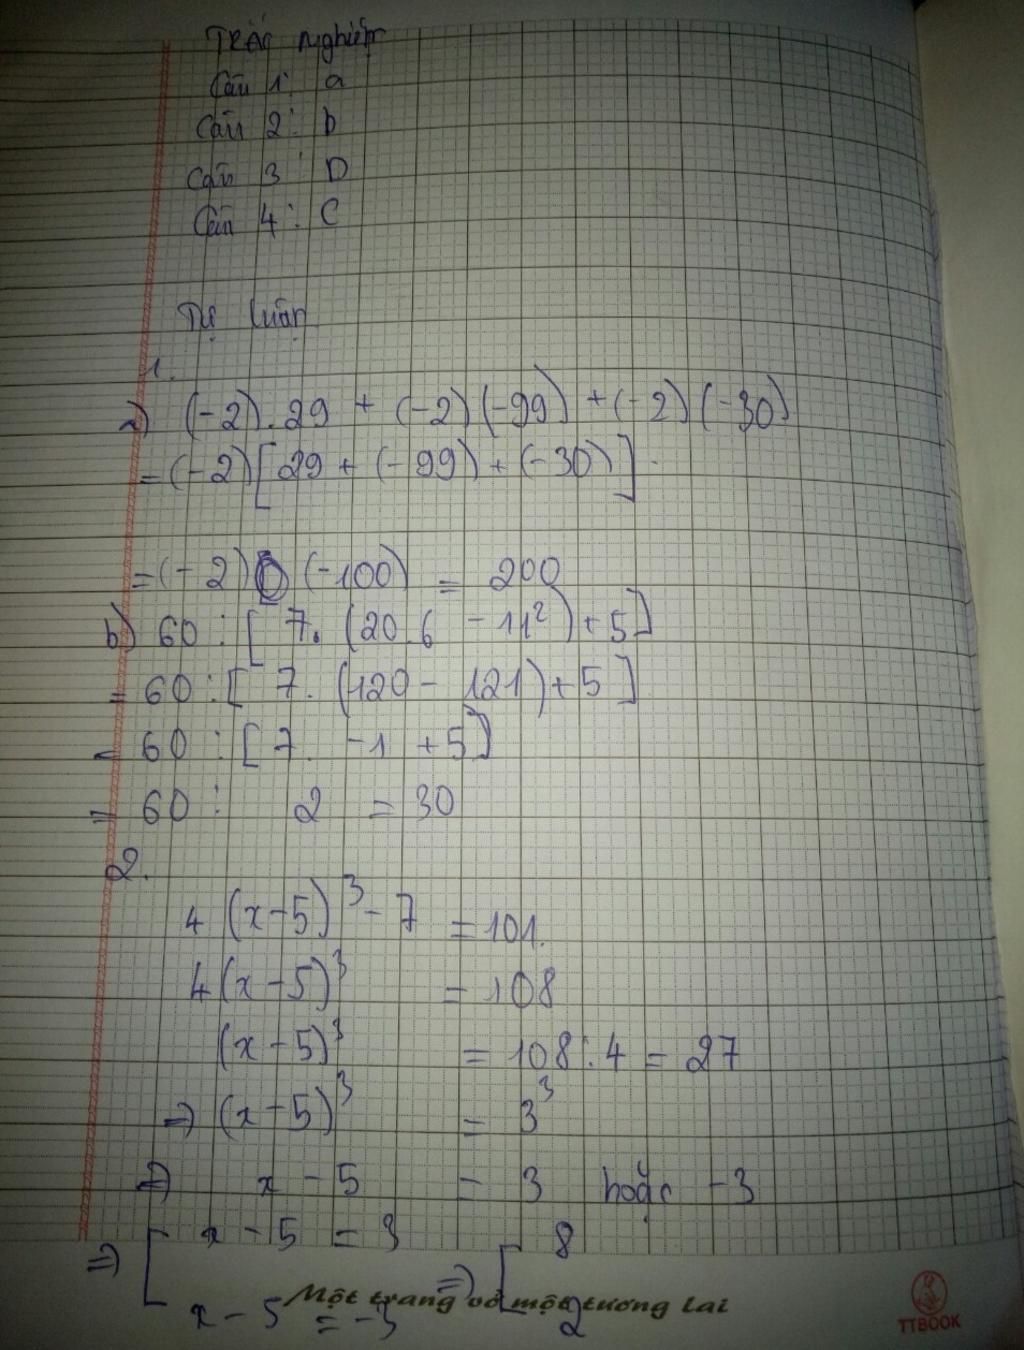 Trắc Nghiệm
Câu 1: a
Câu 2: b
Câu 3: D
Câu 4: C
Tự luận
1.
a) (-2).29 + (-2)(-99) + (-2)(-30)
= (-2)[29 + (-99) + (-30)]
= (-2) (-100) = 200
b) 60 : [7. (20.6 - 11²) + 5]
= 60 : [7. (120 - 121) + 5]
= 60 : [7. -1 + 5]
= 60 : 2 = 30
2.
4 (x-5)³ - 7 = 101.
4(x-5)³ = 108
(x-5)³ = 108:4 = 27
=> (x-5)³ = 3³
=> x - 5 = 3 hoặc -3
=> [ x - 5 = 3 => [ 8
x - 5 = -3 2
Một trang vở một tương lai
TTBOOK